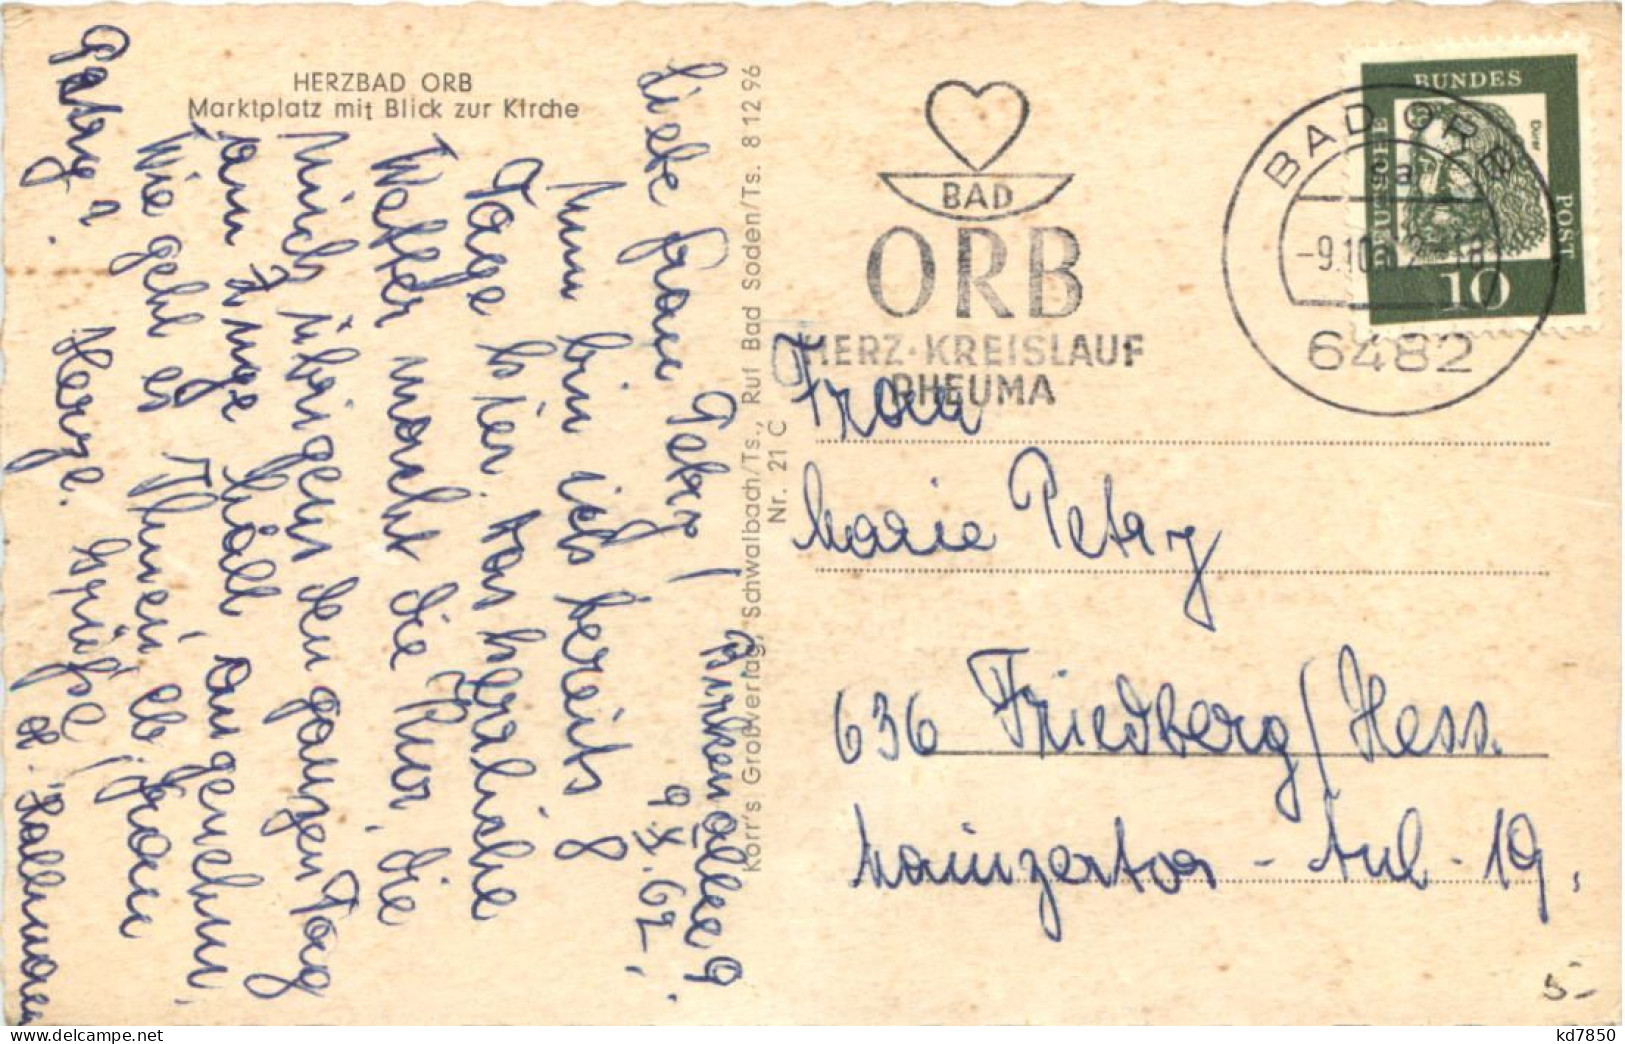 HERZBAD ORB
Marktplatz mit Blick zur Kirche
Birkenallee 9
9.X.62.
Liebe Frau Petry!
Nun bin ich bereits 8
Tage hier. Das herrliche
Wetter macht die Kur, die
mich übrigens den ganzen Tag
in hält, angenehm.
Wie geht es Ihnen, lb. Frau
Petry?
Herzl. Grüße!
Korr's Großvertag, Schwalbach/Ts., Ruf Bad Soden/Ts. 8 12 96
Nr. 21 C
BAD
ORB
HERZ·KREISLAUF
RHEUMA
BAD ORB
a
-9.10.62-18
6482
BUNDES
DEUTSCHE
POST
Dürer
10
Frau
Marie Petry
636 Friedberg/Hess.
Mainzertor-Anl. 19.
5-
kd7850